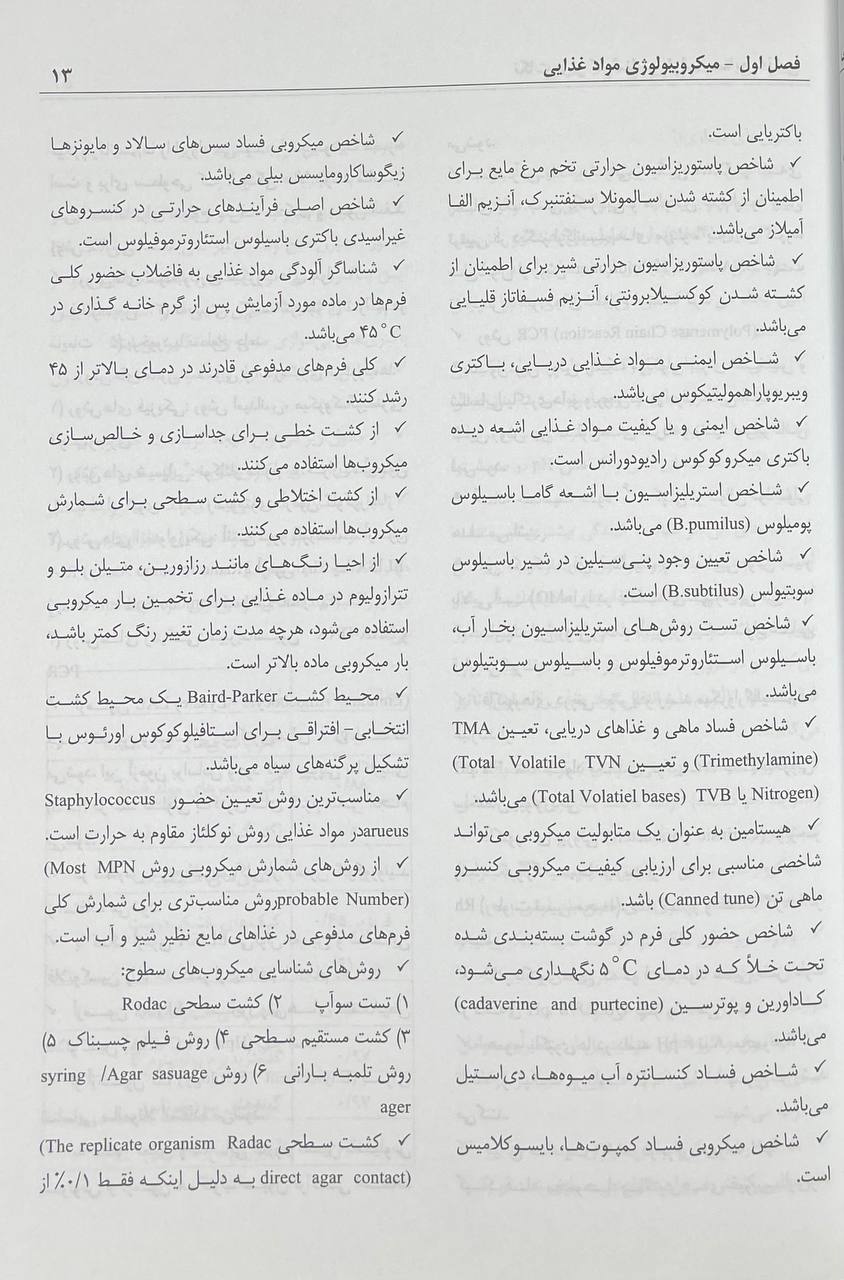 فصل اول - میکروبیولوژی مواد غذایی
۱۳
باکتریایی است.
✓ شاخص پاستوریزاسیون حرارتی تخم مرغ مایع برای
اطمینان از کشته شدن سالمونلا سنفتنبرک، آنزیم الفا
آمیلاز می‌باشد.
✓ شاخص پاستوریزاسیون حرارتی شیر برای اطمینان از
کشته شدن کوکسیلابرونتی، آنزیم فسفاتاز قلیایی
می‌باشد.
✓ شاخص ایمنی مواد غذایی دریایی، باکتری
ویبریوپاراهمولیتیکوس می‌باشد.
✓ شاخص ایمنی و یا کیفیت مواد غذایی اشعه دیده
باکتری میکروکوکوس رادیودورانس است.
✓ شاخص استریلیزاسیون با اشعه گاما باسیلوس
پومیلوس (B.pumilus) می‌باشد.
✓ شاخص تعیین وجود پنی‌سیلین در شیر باسیلوس
سوبتیولس (B.subtilus) است.
✓ شاخص تست روش‌های استریلیزاسیون بخار آب،
باسیلوس استئاروترموفیلوس و باسیلوس سوبتیلوس
می‌باشد.
✓ شاخص فساد ماهی و غذاهای دریایی، تعیین TMA
(Trimethylamine) و تعیین TVN (Total Volatile
Nitrogen) یا TVB (Total Volatiel bases) می‌باشد.
✓ هیستامین به عنوان یک متابولیت میکروبی می‌تواند
شاخصی مناسبی برای ارزیابی کیفیت میکروبی کنسرو
ماهی تن (Canned tune) باشد.
✓ شاخص حضور کلی فرم در گوشت بسته‌بندی شده
تحت خلأ که در دمای ۵°C نگهداری می‌شود،
کاداورین و پوترسین (cadaverine and purtecine)
می‌باشد.
✓ شاخص فساد کنسانتره آب میوه‌ها، دی‌استیل
می‌باشد.
✓ شاخص میکروبی فساد کمپوت‌ها، بایسوکلامیس
است.
✓ شاخص میکروبی فساد سس‌های سالاد و مایونزها
زیگوساکارومایسس بیلی می‌باشد.
✓ شاخص اصلی فرآیندهای حرارتی در کنسروهای
غیراسیدی باکتری باسیلوس استئاروترموفیلوس است.
✓ شناساگر آلودگی مواد غذایی به فاضلاب حضور کلی
فرم‌ها در ماده مورد آزمایش پس از گرم خانه گذاری در
۴۵°C می‌باشد.
✓ کلی فرم‌های مدفوعی قادرند در دمای بالاتر از ۴۵
رشد کنند.
✓ از کشت خطی برای جداسازی و خالص‌سازی
میکروب‌ها استفاده می‌کنند.
✓ از کشت اختلاطی و کشت سطحی برای شمارش
میکروب‌ها استفاده می‌کنند.
✓ از احیا رنگ‌های مانند رزازورین، متیلن بلو و
تترازولیوم در ماده غذایی برای تخمین بار میکروبی
استفاده می‌شود، هرچه مدت زمان تغییر رنگ کمتر باشد،
بار میکروبی ماده بالاتر است.
✓ محیط کشت Baird-Parker یک محیط کشت
انتخابی- افتراقی برای استافیلوکوکوس اورئوس با
تشکیل پرگنه‌های سیاه می‌باشد.
✓ مناسب‌ترین روش تعیین حضور Staphylococcus
arueusدر مواد غذایی روش نوکلئاز مقاوم به حرارت است.
✓ از روش‌های شمارش میکروبی روش MPN (Most
probable Number)روش مناسب‌تری برای شمارش کلی
فرم‌های مدفوعی در غذاهای مایع نظیر شیر و آب است.
✓ روش‌های شناسایی میکروب‌های سطوح:
۱) تست سوآپ ۲) کشت سطحی Rodac
۳) کشت مستقیم سطحی ۴) روش فیلم چسبناک ۵)
روش تلمبه بارانی ۶) روش syring /Agar sasuage
ager
✓ کشت سطحی Radac (The replicate organism
direct agar contact) به دلیل اینکه فقط ۰/۱٪ از